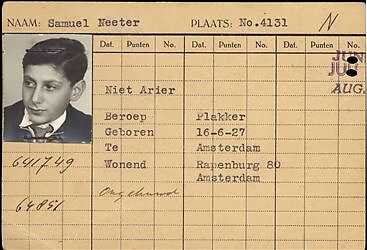 NAAM: Samuel Neeter PLAATS: No.4131 N
Dat. Punten No. Dat. Punten No. Dat. Punten No. Dat. Punten No.
JUNI
JULI
AUG.
Niet Arier
Beroep Plakker
Geboren 16-6-27
Te Amsterdam
641749 Wonend Rapenburg 80
Amsterdam
Ongehuwd